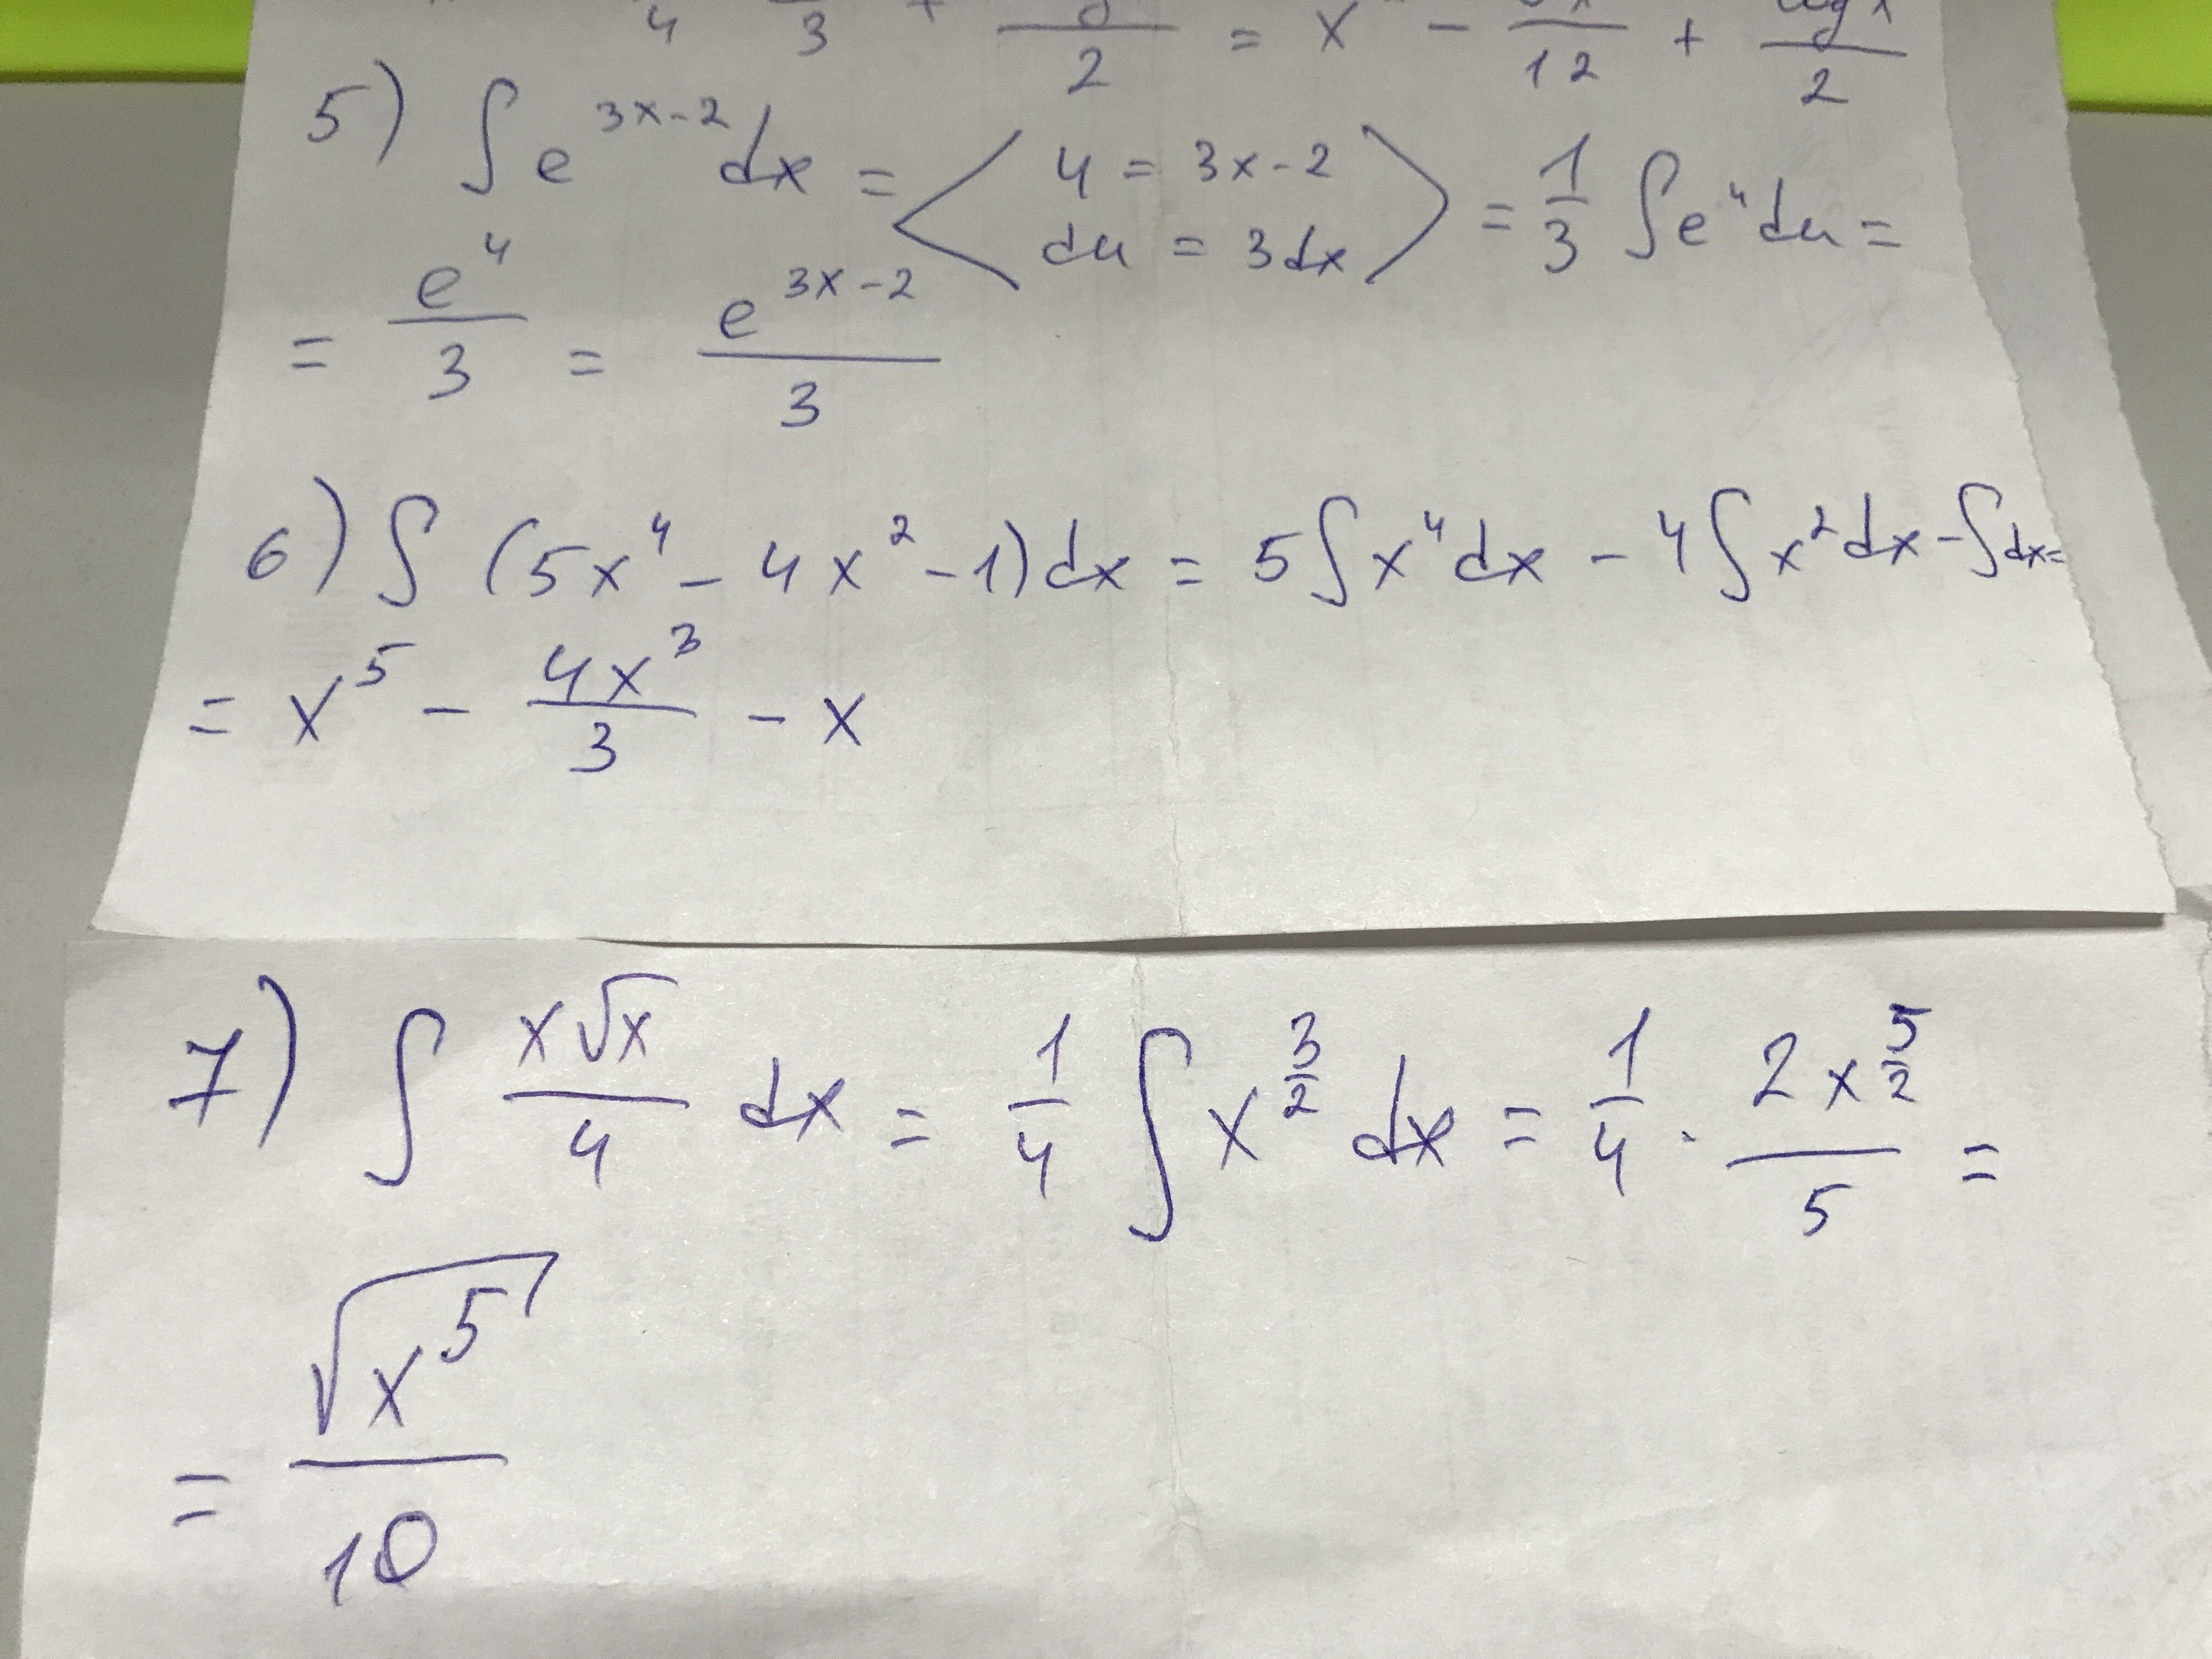 4 3 + 2 = x - 12 + 2
5) ∫ e^{3x-2} dx = < u = 3x-2 du = 3dx > = 1/3 ∫ e^u du =
= e^u/3 = e^{3x-2}/3
6) ∫ (5x^4 - 4x^2 - 1) dx = 5∫ x^4 dx - 4∫ x^2 dx - ∫ dx =
= x^5 - 4x^3/3 - x
7) ∫ x√x/4 dx = 1/4 ∫ x^{3/2} dx = 1/4 · 2x^{5/2}/5 =
= √x^5/10